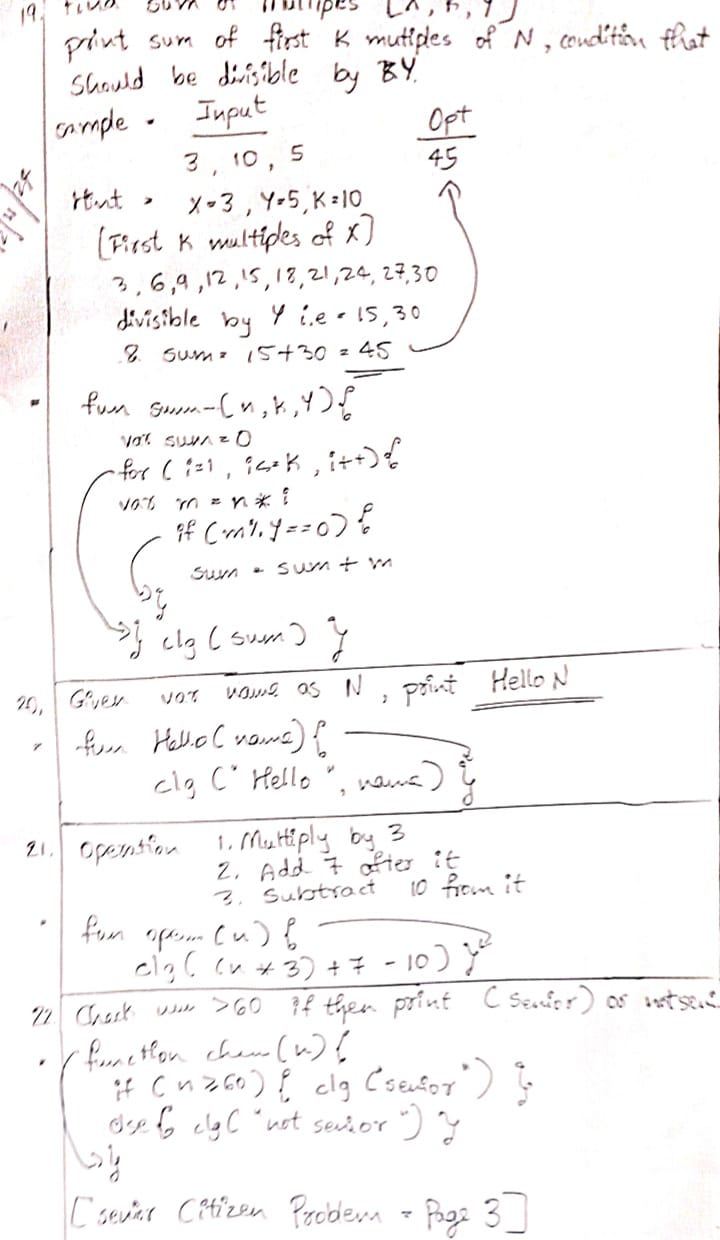 19. Find sum of multiples [X, K, Y]
print sum of first K mutiples of N, condition that
should be divisible by Y.
Input Opt
3, 10, 5 45
Hint X=3, Y=5, K=10
[First K multiples of X]
3, 6, 9, 12, 15, 18, 21, 24, 27, 30
divisible by Y i.e = 15, 30
& sum = 15+30 = 45
fun sum-(n, k, Y) {
var sum = 0
for (i=1, i<=K, i++) {
var m = n * i
if (m % Y == 0) {
sum = sum + m
}
} clg (sum) }
20, Given var name as N, print Hello N
fun Hello(name) {
clg ("Hello", name) }
21. Operation 1. Multiply by 3
2. Add 7 after it
3. Subtract 10 from it
fun (n) {
clg ( (n * 3) + 7 - 10) }
22 Check >60 if then print (Senior) or not seni
function (n) {
if (n ≥ 60) { clg ("senior") }
else { clg ("not senior") }
}
[senior Citizen Problem = Page 3]